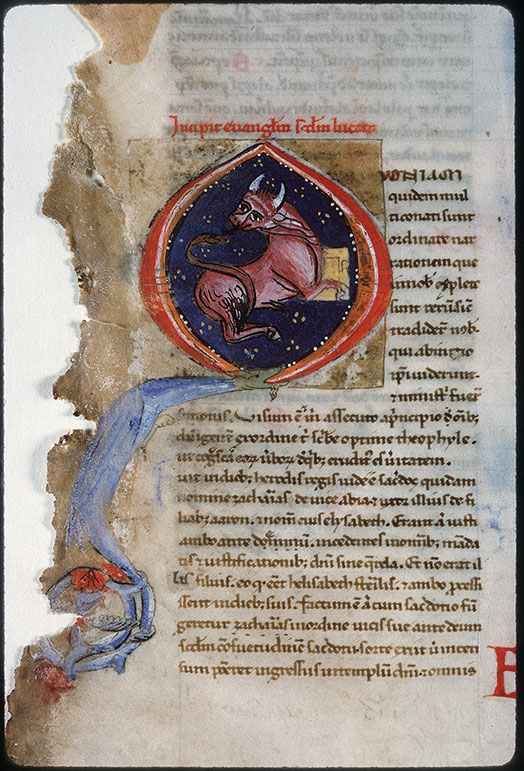 Incipit evangliu scdm lucam
UONIAM
quidem mul
ti conati sunt
ordinare nar
rationem que
in nob complete
sunt rerum sic
tradider nob
qui ab inicio
ipsi viderunt
& ministri fuer
sermonis. Visum e & m assecuto a principio omib;
diligent ex ordine t sc'be optime theophyle.
ut cognoscas eor v'bor de q'b; erudit' es veritatem.
uit in dieb; herodis regis iude e sac'dos quidam
nomine zacharias de vice abia & uxor illius de fi
liab; aaron. & nom eius elysabeth. Erant a iusti
ambo ante dominum. incedentes in omib; manda
tis & iustificationib; dni sine q'rela. Et non erat il
lis filius. eo q eent helisabeth st'ilis. & ambo process
issent in dieb; suis. Factum e a cum sac'dotio fun
geretur zacharias in ordine vicis sue ante deum
scdm c'suetudinem sac'dotii. sorte exiit ut incen
sum poneret ingressus in templum dni. & omnis
E